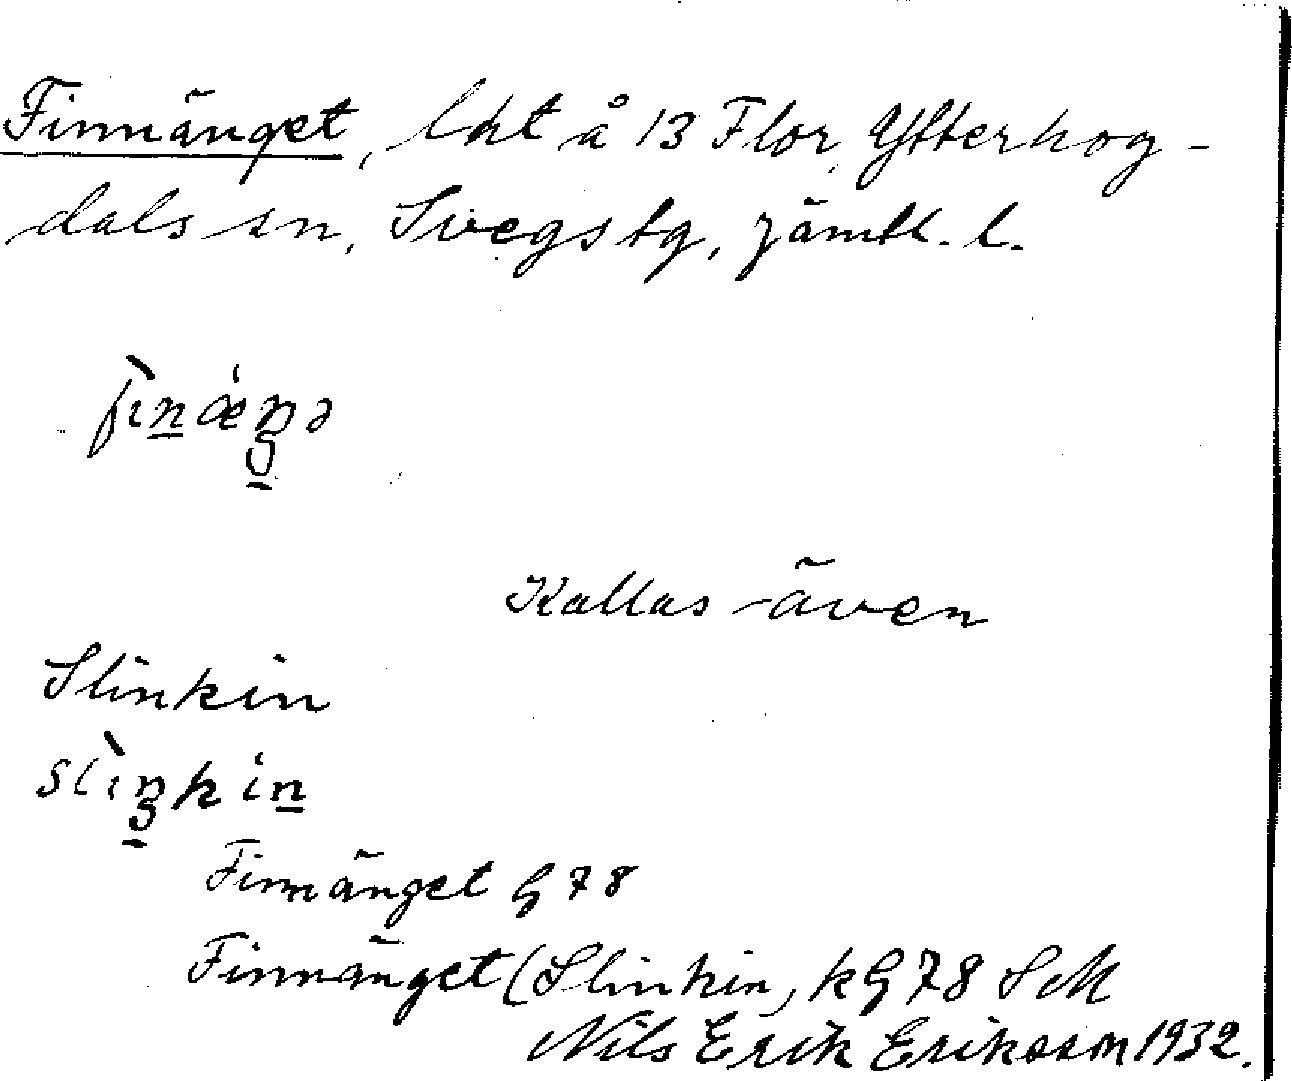 Finnänget, lht å 13 Flor, Ytterhog-
dals sn, Svegs tg, Jämtl. l.
fìnæ̀ŋə
Kallas även
Slinkin
slìŋkin
Finnänget G 78
Finnänget (Slinkin, kG 78 SM
Nils Erik Eriksson 1932.